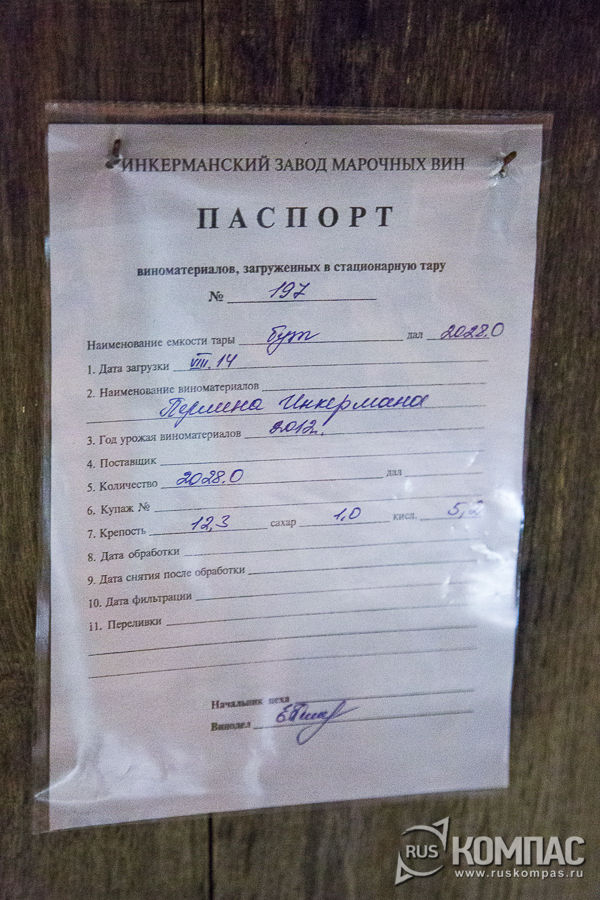 ИНКЕРМАНСКИЙ ЗАВОД МАРОЧНЫХ ВИН
ПАСПОРТ
виноматериалов, загруженных в стационарную тару
№ 197
Наименование емкости тары бут дал 2028.0
1. Дата загрузки VIII. 14
2. Наименование виноматериалов
Перлина Инкермана
3. Год урожая виноматериалов 2012.
4. Поставщик
5. Количество 2028.0 дал
6. Купаж №
7. Крепость 12,3 сахар 1,0 кисл. 5,2
8. Дата обработки
9. Дата снятия после обработки
10. Дата фильтрации
11. Переливки
Начальник цеха
Винодел
RUS КОМПАС
www.ruskompas.ru